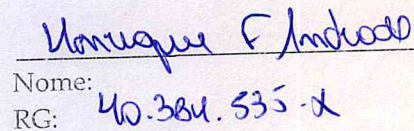 Henrique F Andrade
Nome:
RG: 40.384.535-X